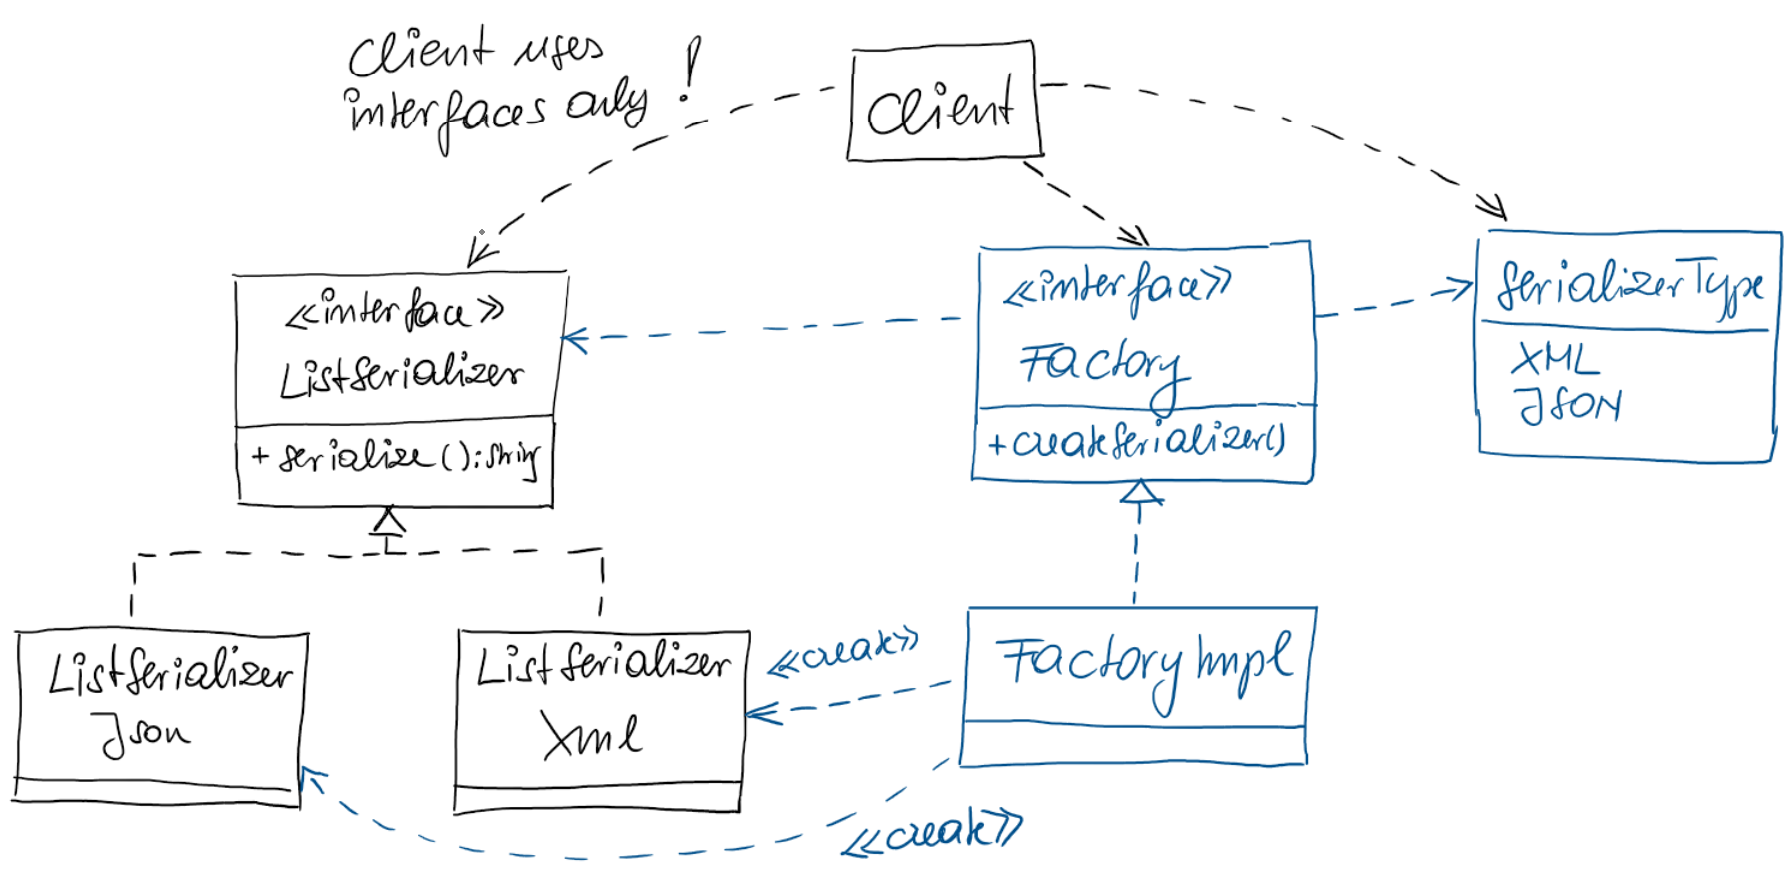 Client uses
interfaces only !
Client
<<interface>>
ListSerializer
+ serialize(): String
<<interface>>
Factory
+createSerializer()
SerializerType
XML
JSON
ListSerializer
Json
ListSerializer
Xml
<<create>>
FactoryImpl
<<create>>